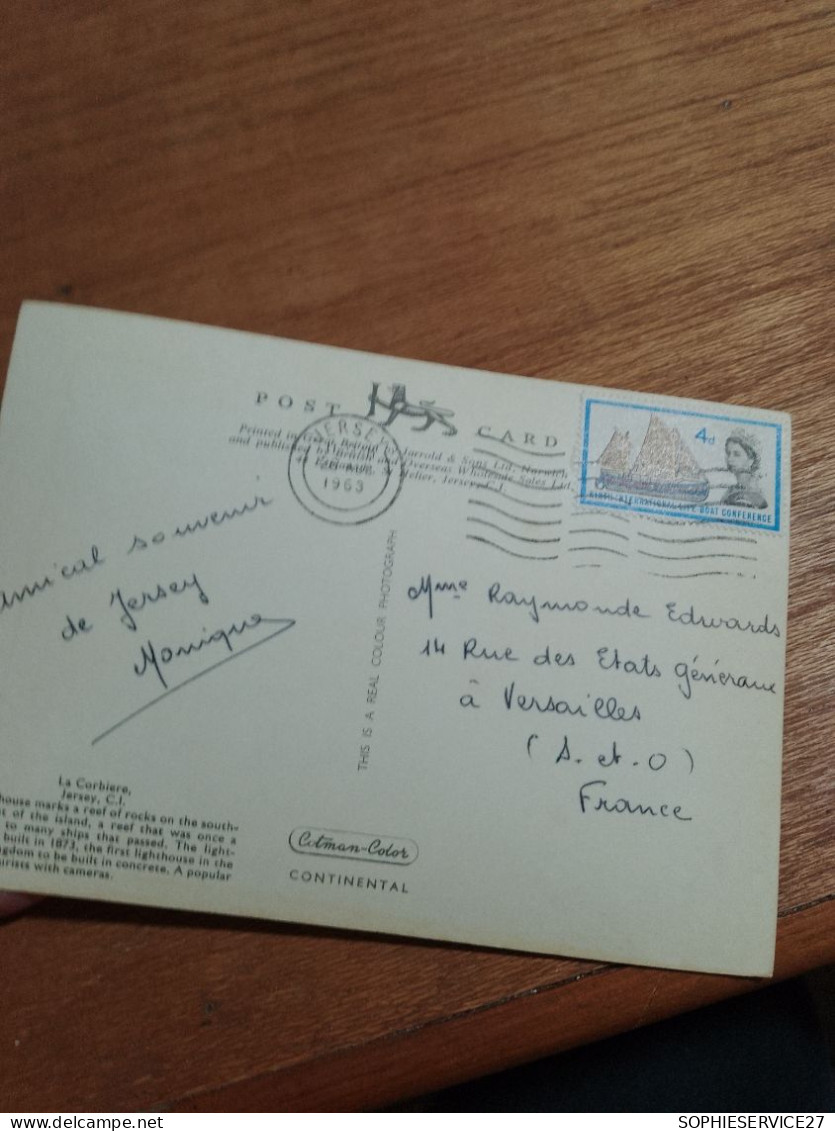 POST CARD
Printed in Great Britain by Jarrold & Sons Ltd, Norwich,
and published by Jarrold and Overseas Wholesale Sales Ltd.
St. Helier, Jersey, C.I.
JERSEY
1963
4d
INTERNATIONAL LIFE-BOAT CONFERENCE
amical souvenir
de Jersey
Monique
THIS IS A REAL COLOUR PHOTOGRAPH
Mme Raymonde Edwards
14 Rue des Etats généraux
à Versailles
(S. et. O)
France
La Corbiere,
Jersey, C.I.
house marks a reef of rocks on the south-
t of the island, a reef that was once a
to many ships that passed. The light-
built in 1873, the first lighthouse in the
ngdom to be built in concrete. A popular
urists with cameras.
Cotman-Color
CONTINENTAL
SOPHIESERVICE27